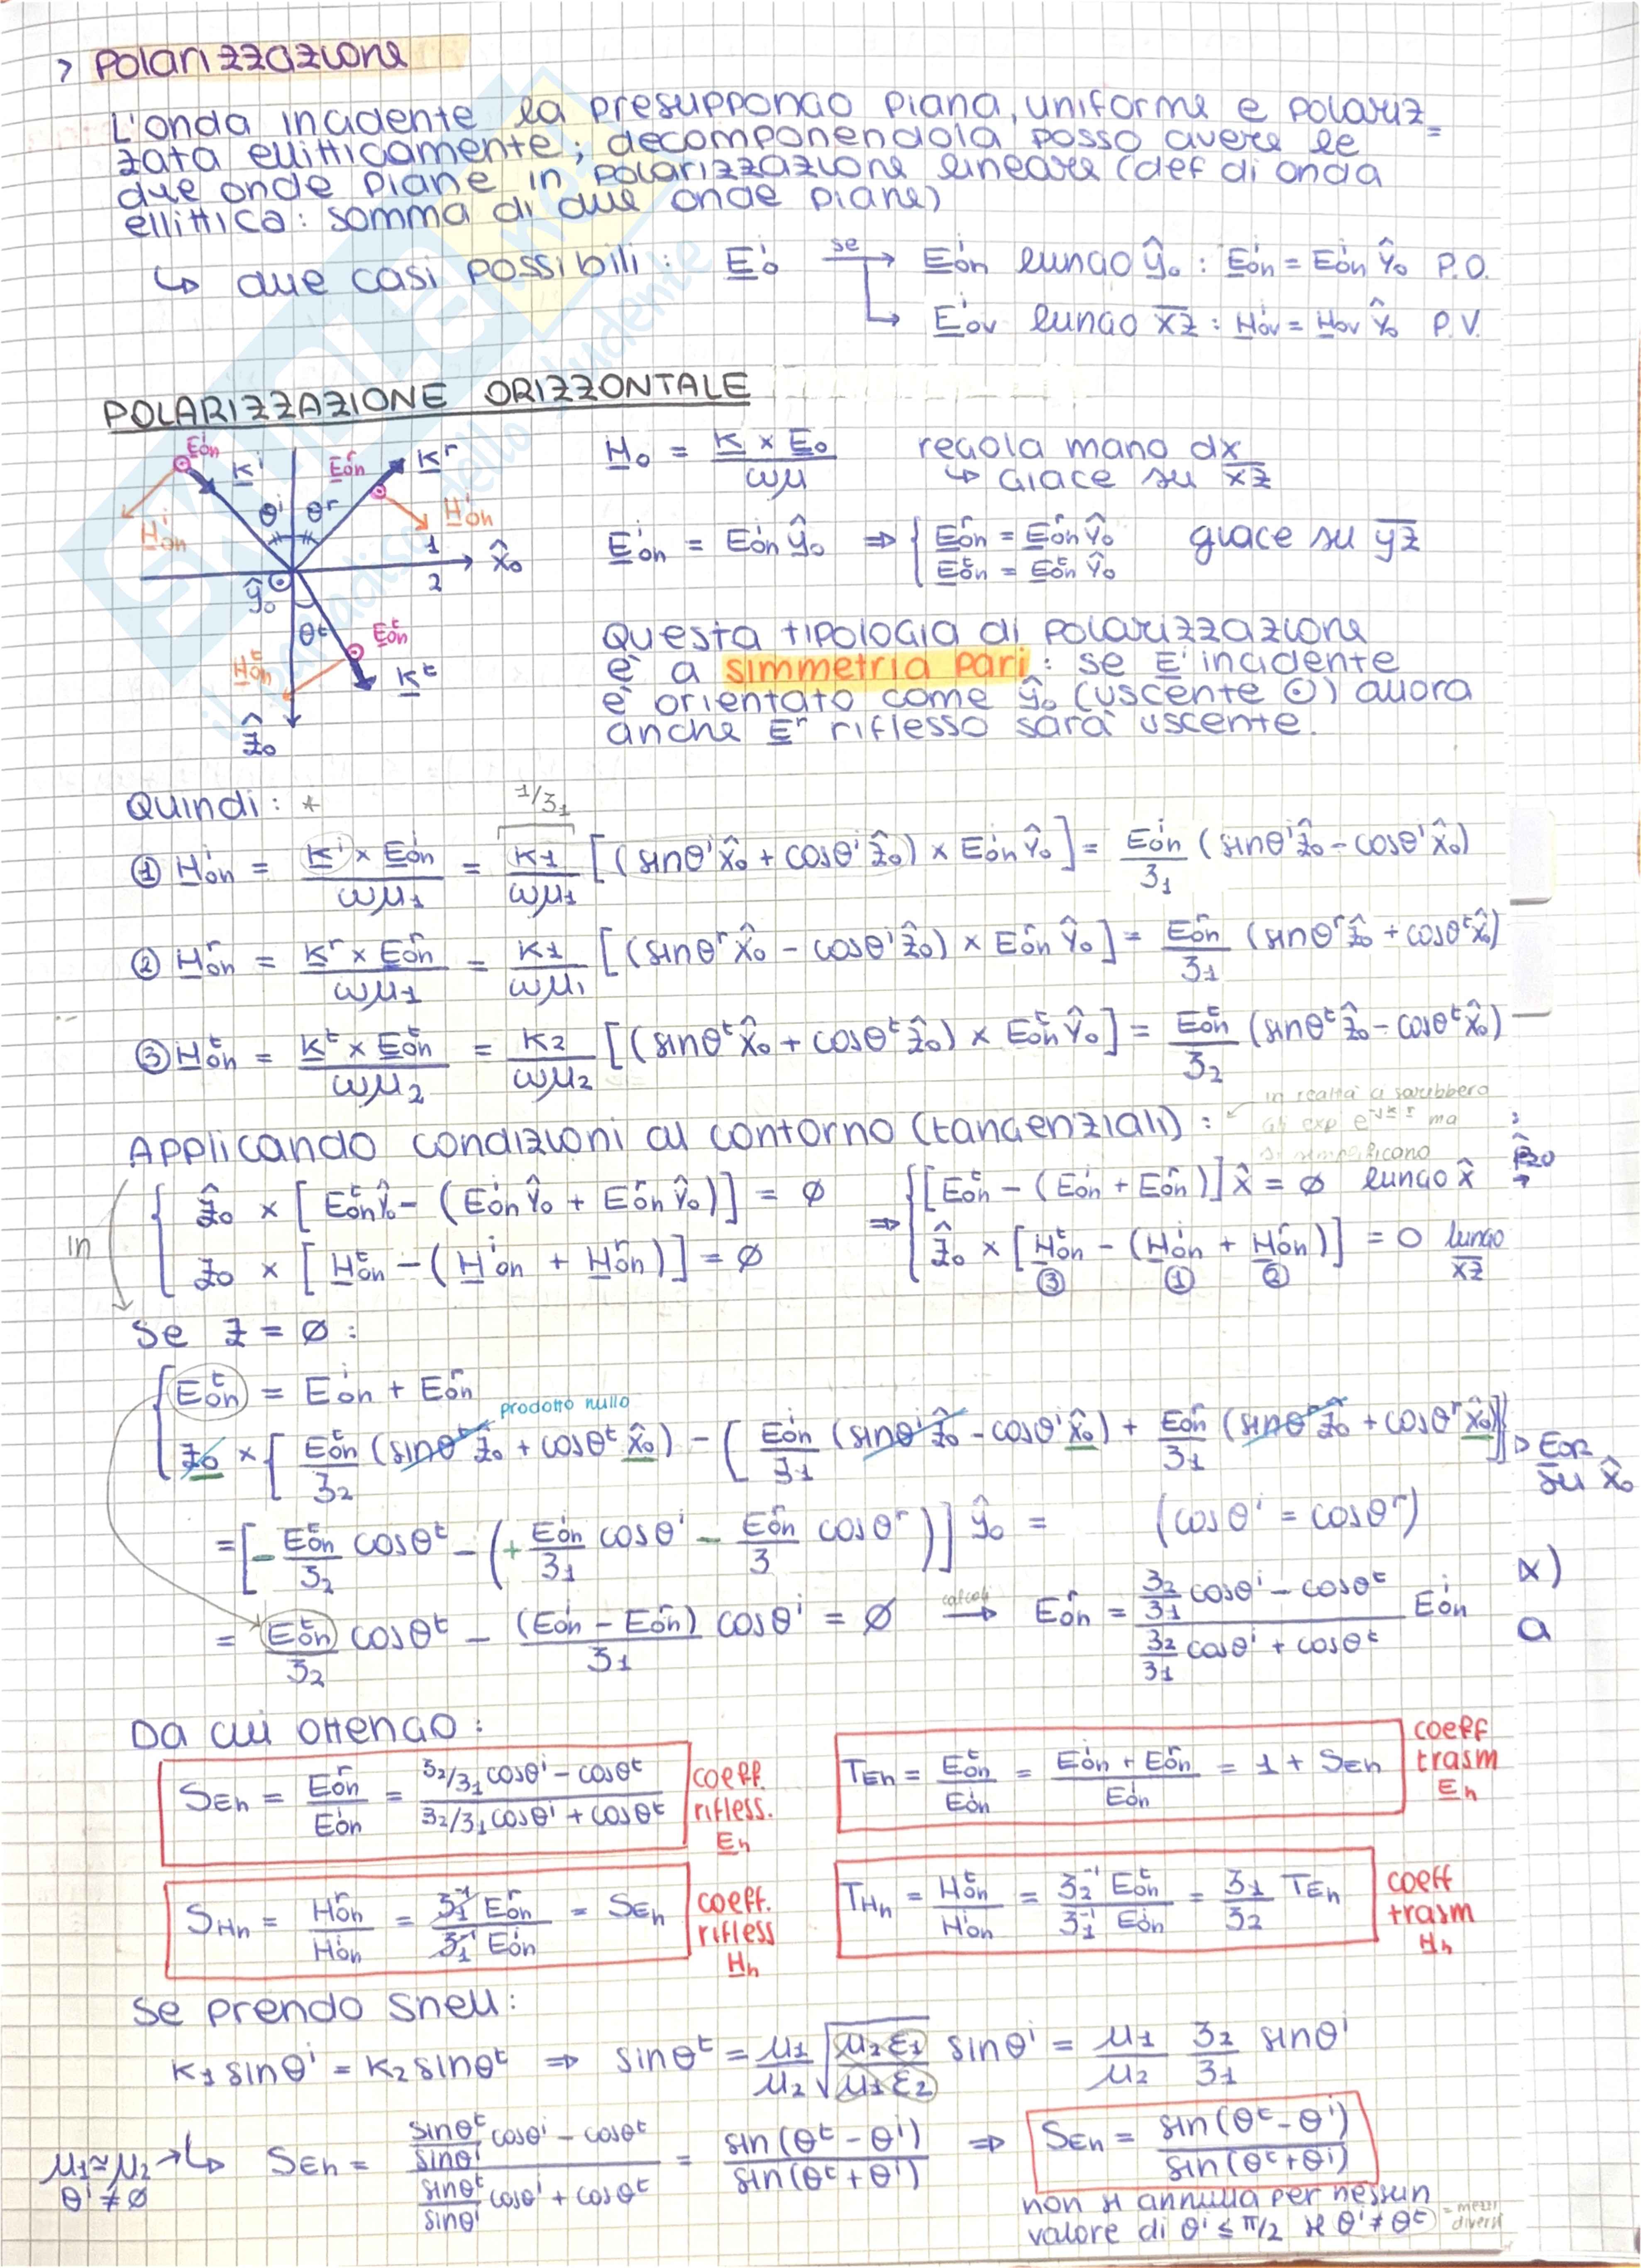 > Polarizzazione
L'onda incidente la presuppongo piana, uniforme e polariz=
zata ellitticamente; decomponendola posso avere le
due onde piane in polarizzazione lineare (def di onda
ellittica: somma di due onde piane)
↳ due casi possibili: E₀ⁱ se → E₀ₕⁱ lungo ŷ₀ : E₀ₕⁱ = E₀ₕⁱ ŷ₀ P.O.
↳ E₀ᵥⁱ lungo xz : H₀ᵥⁱ = H₀ᵥ ŷ₀ P.V.
POLARIZZAZIONE ORIZZONTALE
E₀ₕⁱ Kⁱ E₀ₕʳ Kʳ
H₀ₕⁱ θⁱ θʳ H₀ₕʳ
1 x̂₀
ŷ₀ 2
θᵗ E₀ₕᵗ
H₀ₕᵗ Kᵗ
ẑ₀
H₀ = K × E₀ / ωμ regola mano dx
↳ Giace su xz
E₀ₕⁱ = E₀ₕⁱ ŷ₀ ⇒ { E₀ₕʳ = E₀ₕʳ ŷ₀ giace su yz
E₀ₕᵗ = E₀ₕᵗ ŷ₀
Questa tipologia di polarizzazione
è a simmetria pari: se Eⁱ incidente
è orientato come ŷ₀ (uscente ⊙) allora
anche Eʳ riflesso sarà uscente.
Quindi: *
1/ζ₁
① H₀ₕⁱ = Kⁱ × E₀ₕⁱ / ωμ₁ = K₁ / ωμ₁ [(sinθⁱ x̂₀ + cosθⁱ ẑ₀) × E₀ₕⁱ ŷ₀] = E₀ₕⁱ / ζ₁ (sinθⁱ ẑ₀ - cosθⁱ x̂₀)
② H₀ₕʳ = Kʳ × E₀ₕʳ / ωμ₁ = K₁ / ωμ₁ [(sinθʳ x̂₀ - cosθⁱ ẑ₀) × E₀ₕʳ ŷ₀] = E₀ₕʳ / ζ₁ (sinθʳ ẑ₀ + cosθᵗ x̂₀)
③ H₀ₕᵗ = Kᵗ × E₀ₕᵗ / ωμ₂ = K₂ / ωμ₂ [(sinθᵗ x̂₀ + cosθᵗ ẑ₀) × E₀ₕᵗ ŷ₀] = E₀ₕᵗ / ζ₂ (sinθᵗ ẑ₀ - cosθᵗ x̂₀)
in realtà ci sarebbero
gli exp e^-jk·r ma
si semplificano
Applicando condizioni al contorno (tangenziali) :
{ ẑ₀ × [E₀ₕᵗ ŷ₀ - (E₀ₕⁱ ŷ₀ + E₀ₕʳ ŷ₀)] = ∅ ⇒ { [E₀ₕᵗ - (E₀ₕⁱ + E₀ₕʳ)] x̂ = ∅ lungo x̂
in
ẑ₀ × [H₀ₕᵗ - (H₀ₕⁱ + H₀ₕʳ)] = ∅ ẑ₀ × [H₀ₕᵗ - (H₀ₕⁱ + H₀ₕʳ)] = 0 lungo xz
③ ① ②
Se z = ∅ :
{ E₀ₕᵗ = E₀ₕⁱ + E₀ₕʳ
prodotto nullo
ẑ₀ × { E₀ₕᵗ / ζ₂ (sinθᵗ ẑ₀ + cosθᵗ x̂₀) - [ E₀ₕⁱ / ζ₁ (sinθⁱ ẑ₀ - cosθⁱ x̂₀) + E₀ₕʳ / ζ₁ (sinθʳ ẑ₀ + cosθʳ x̂₀)]}
su x̂₀
= [- E₀ₕᵗ / ζ₂ cosθᵗ - (+ E₀ₕⁱ / ζ₁ cosθⁱ - E₀ₕʳ / ζ cosθʳ)] ŷ₀ = (cosθⁱ = cosθʳ)
x)
= E₀ₕᵗ / ζ₂ cosθᵗ - (E₀ₕⁱ - E₀ₕʳ) / ζ₁ cosθⁱ = ∅ calcoli → E₀ₕʳ = (ζ₂/ζ₁ cosθⁱ - cosθᵗ) / (ζ₂/ζ₁ cosθⁱ + cosθᵗ) E₀ₕⁱ
a
Da cui ottengo :
S_Eh = E₀ₕʳ / E₀ₕⁱ = (ζ₂/ζ₁ cosθⁱ - cosθᵗ) / (ζ₂/ζ₁ cosθⁱ + cosθᵗ) coeff. rifless. Eₕ
T_Eh = E₀ₕᵗ / E₀ₕⁱ = (E₀ₕⁱ + E₀ₕʳ) / E₀ₕⁱ = 1 + S_Eh coeff trasm Eₕ
S_Hh = H₀ₕʳ / H₀ₕⁱ = ζ₁⁻¹ E₀ₕʳ / ζ₁⁻¹ E₀ₕⁱ = S_Eh coeff. rifless Hₕ
T_Hh = H₀ₕᵗ / H₀ₕⁱ = ζ₂⁻¹ E₀ₕᵗ / ζ₁⁻¹ E₀ₕⁱ = ζ₁/ζ₂ T_Eh coeff trasm Hₕ
Se prendo Snell :
K₁ sinθⁱ = K₂ sinθᵗ ⇒ sinθᵗ = μ₁/μ₂ √(μ₂ε₁ / μ₁ε₂) sinθⁱ = μ₁/μ₂ ζ₂/ζ₁ sinθⁱ
μ₁ ≃ μ₂ → ↳ S_Eh = (sinθᵗ/sinθⁱ cosθⁱ - cosθᵗ) / (sinθᵗ/sinθⁱ cosθⁱ + cosθᵗ) = sin(θᵗ - θⁱ) / sin(θᵗ + θⁱ) ⇒ S_Eh = sin(θᵗ - θⁱ) / sin(θᵗ + θⁱ)
θⁱ ≠ ∅
non si annulla per nessun
valore di θⁱ ≤ π/2 se θⁱ ≠ θᵗ = mezzi diversi